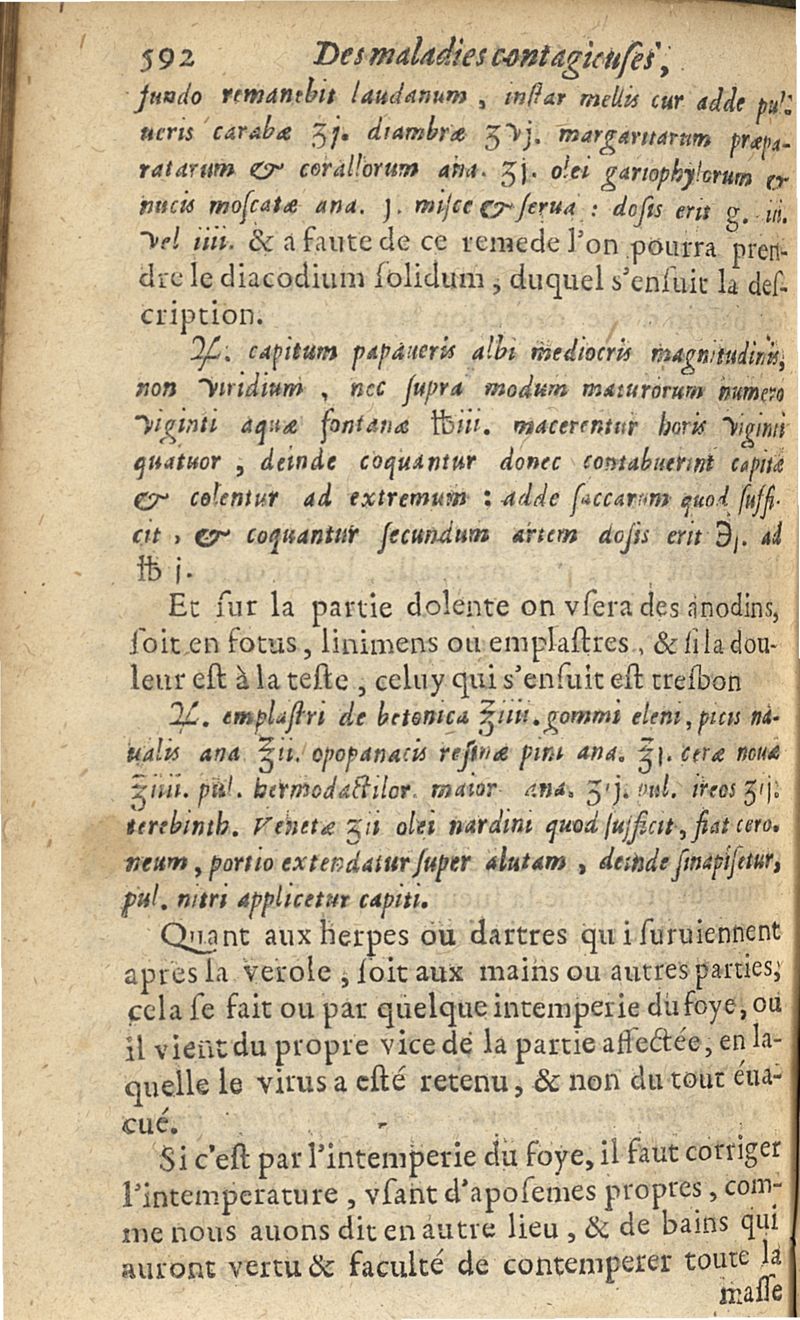 592 Des maladies contagieuses,
fundo remanebit laudanum, instar mellis cui adde pul-
ueris carabæ ʒj. diambræ ʒvj. margaritarum præpa-
ratarum & corallorum ana. ʒj. olei gariophylorum &
nucis moscatæ ana. j. misce & serua : dosis erit g. iii.
vel iiii. & a faute de ce remede l'on pourra pren-
dre le diacodium solidum, duquel s'ensuit la des-
cription.
♃. capitum papaueris albi mediocris magnitudinis,
non viridium, nec supra modum maturorum numero
viginti aquæ fontanæ ℔iii. macerentur horis viginti
quatuor, deinde coquantur donec contabuerint capita
& colentur ad extremum : adde saccarum quod suffi-
cit, & coquantur secundum artem dosis erit ℈j. ad
℔ j.
Et sur la partie dolente on vsera des anodins,
soit en fotus, linimens ou emplastres, & si la dou-
leur est à la teste, celuy qui s'ensuit est tresbon
♃. emplastri de betonica ℥iiii. gommi elemi, picis na-
ualis ana ℥ii. opopanacis resinæ pini ana. ℥j. ceræ nouæ
℥iiii. pul. hermodactilor. maior ana. ʒij. pul. ireos ʒij.
terebinth. Venetæ ʒii olei nardini quod sufficit, fiat cero-
neum, portio extendatur super alutam, deinde sinapisetur,
pul. nitri applicetur capiti.
Quant aux herpes ou dartres qui suruiennent
apres la verole, soit aux mains ou autres parties,
cela se fait ou par quelque intemperie du foye, ou
il vient du propre vice de la partie affectée, en la-
quelle le virus a esté retenu, & non du tout éua-
cué.
Si c'est par l'intemperie du foye, il faut corriger
l'intemperature, vsant d'aposemes propres, com-
me nous auons dit en autre lieu, & de bains qui
auront vertu & faculté de contemperer toute la
masse